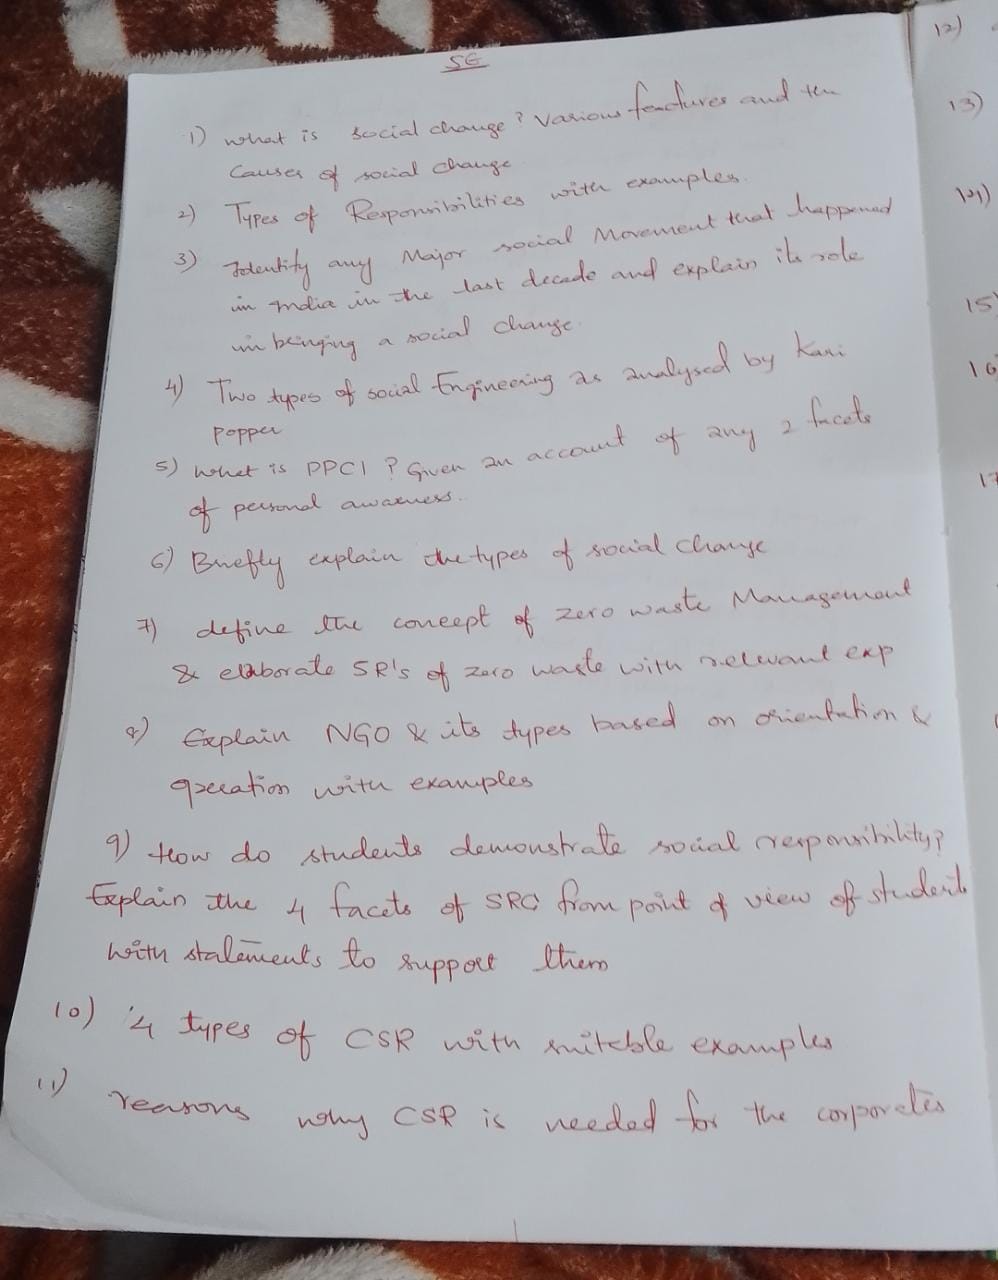 SE
1) what is social change? Various features and the
causes of social change
2) Types of Responsibilities with examples.
3) Identify any Major social Movement that happened
in India in the last decade and explain its role
in bringing a social change.
4) Two types of social Engineering as analysed by Kari
popper
5) what is PPCI? Given an account of any 2 facets
of personal awarness..
6) Briefly explain the types of social change
7) define the concept of zero waste Management
& elaborate 5R's of zero waste with relevant exp
8) Explain NGO & its types based on orientation &
operation with examples
9) How do students demonstrate social responsibility?
Explain the 4 facets of SRC from point of view of students
with statements to support them
10) 4 types of CSR with suiteble examples
11) reasons why CSR is needed for the corporates
12)
13)
15)
16
17